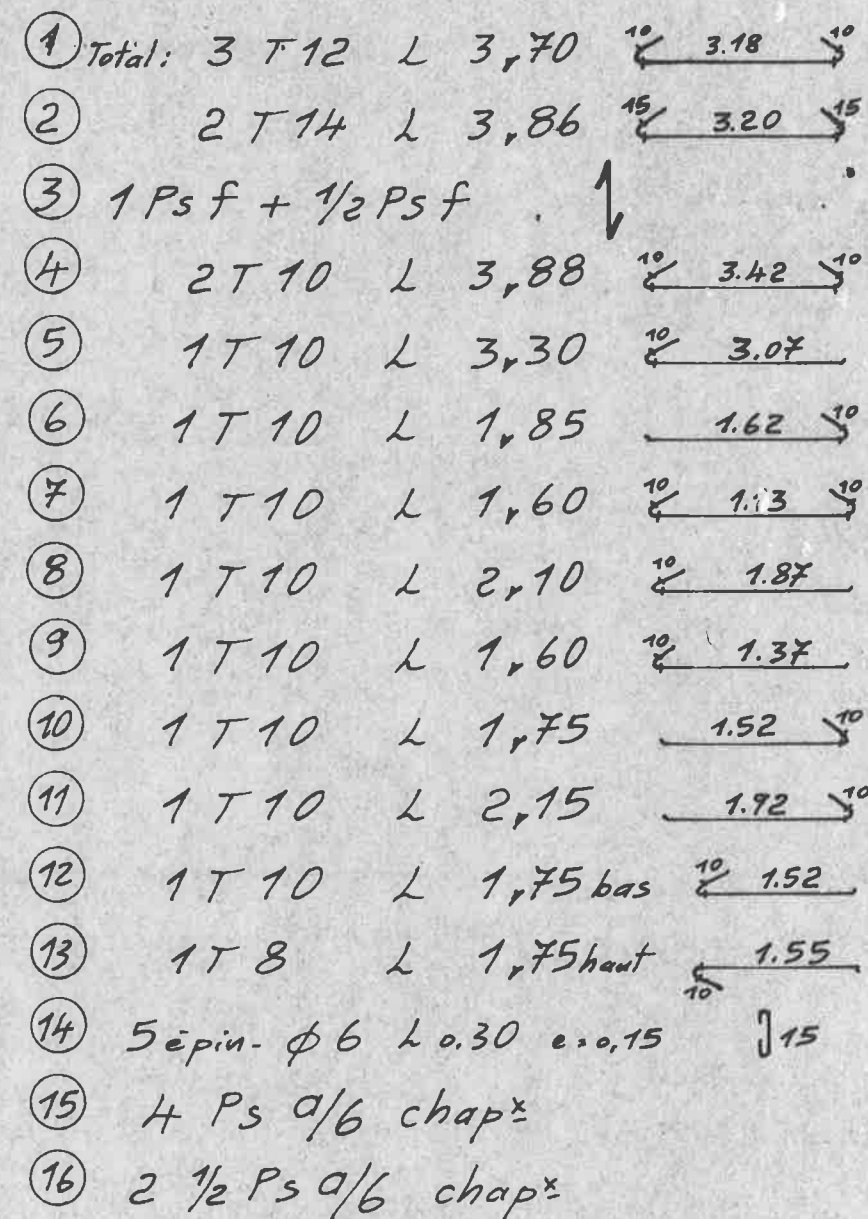 ① Total: 3 T 12 L 3,70 10 3.18 10
② 2 T 14 L 3,86 15 3.20 15
③ 1 Ps f + 1/2 Ps f
④ 2 T 10 L 3,88 10 3.42 10
⑤ 1 T 10 L 3,30 10 3.07
⑥ 1 T 10 L 1,85 1.62 10
⑦ 1 T 10 L 1,60 10 1.13 10
⑧ 1 T 10 L 2,10 10 1.87
⑨ 1 T 10 L 1,60 10 1.37
⑩ 1 T 10 L 1,75 1.52 10
⑪ 1 T 10 L 2,15 1.92 10
⑫ 1 T 10 L 1,75 bas 10 1.52
⑬ 1 T 8 L 1,75 haut 10 1.55
⑭ 5 épin- φ 6 L 0.30 e=0,15 15
⑮ 4 Ps a/6 chapx
⑯ 2 1/2 Ps a/6 chapx